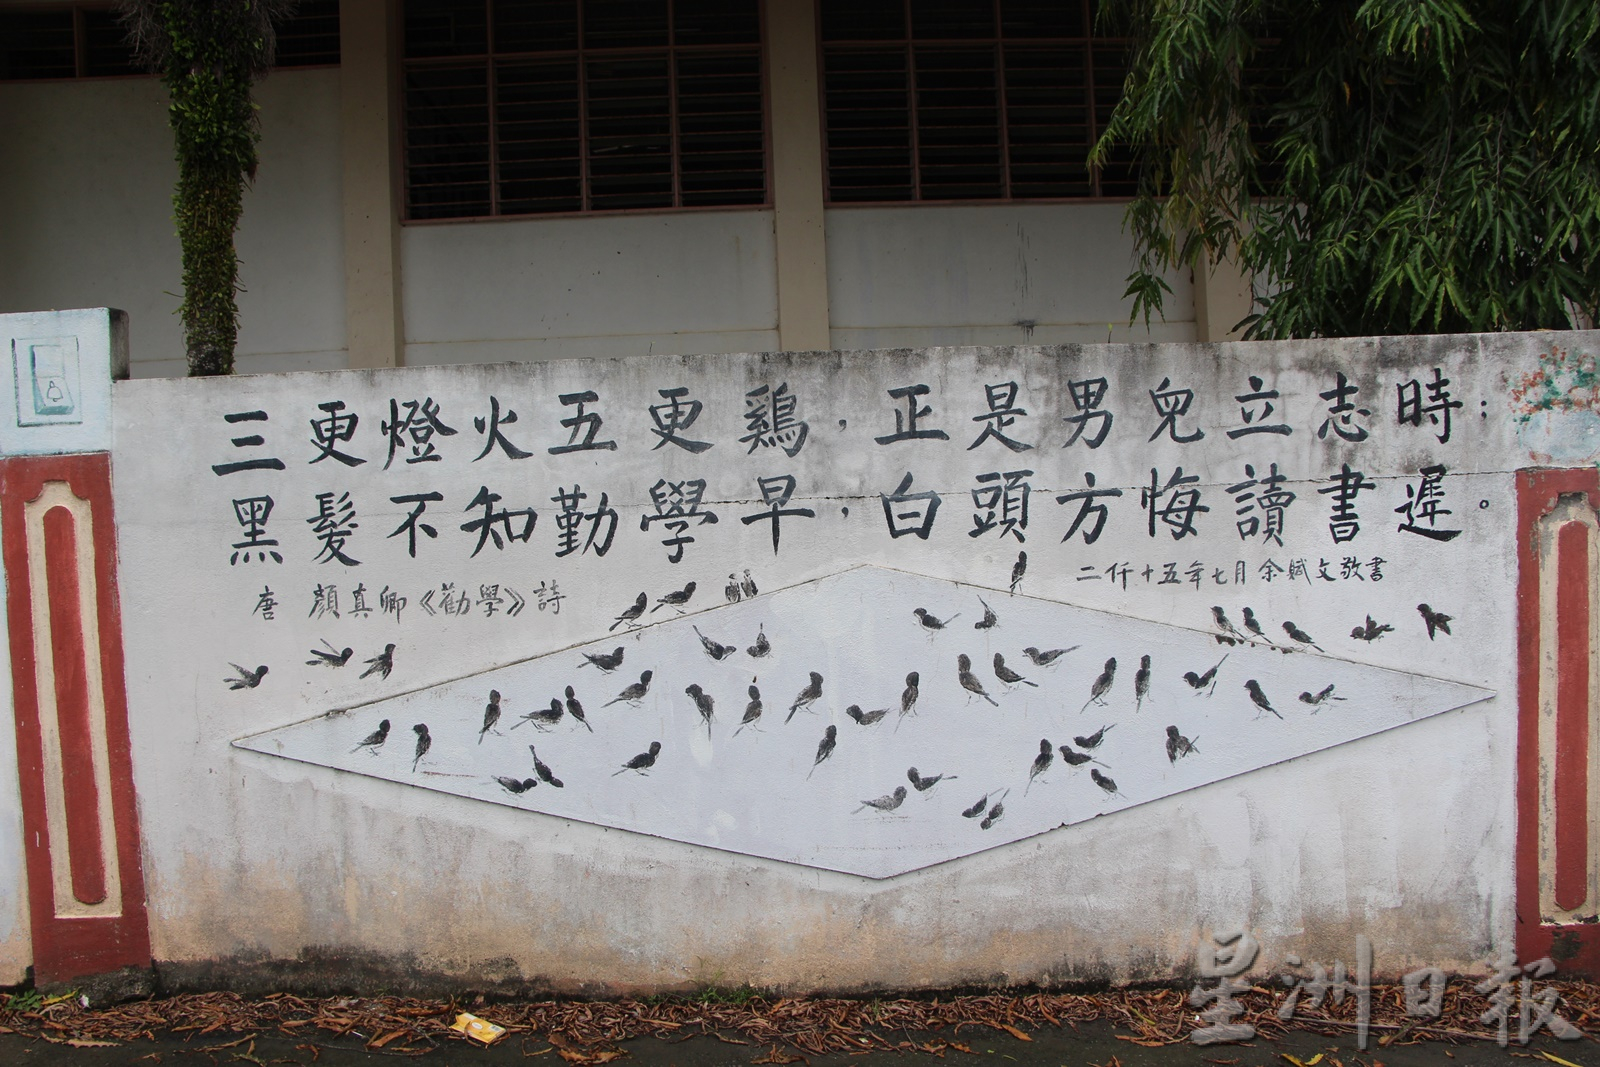 三更燈火五更鷄，正是男兒立志時；
黑髮不知勤學早，白頭方悔讀書遲。
唐 顏真卿《勸學》詩
二仟十五年七月余斌文敬書
星洲日報